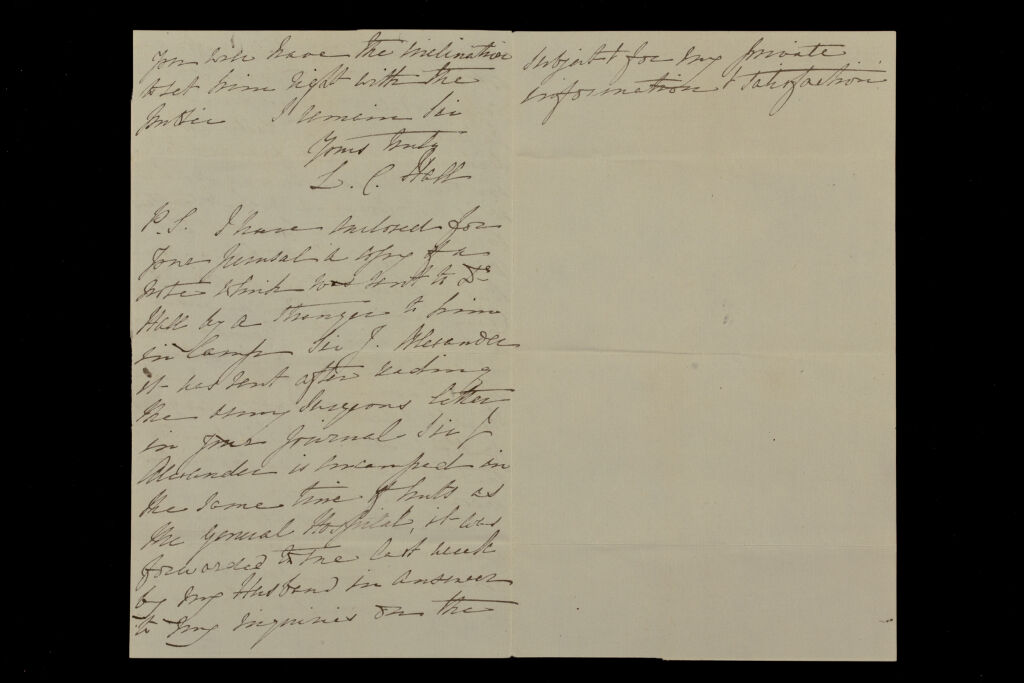 you will have the inclination
to set him right with the
public I remain Sir
Yours truly
L. C. Hall
P.S. I have enclosed for
your perusal a copy of a
note which was sent to Dr
Hall by a stranger to him
in Camp Sir J. Alexander
it was sent after reading
the army Surgeons letter
in your Journal Sir J
Alexander is encamped in
the same line of huts as
the General Hospital, it was
forwarded to me last week
by my Husband in answer
to my inquiries on the
subject for my private
information & satisfaction